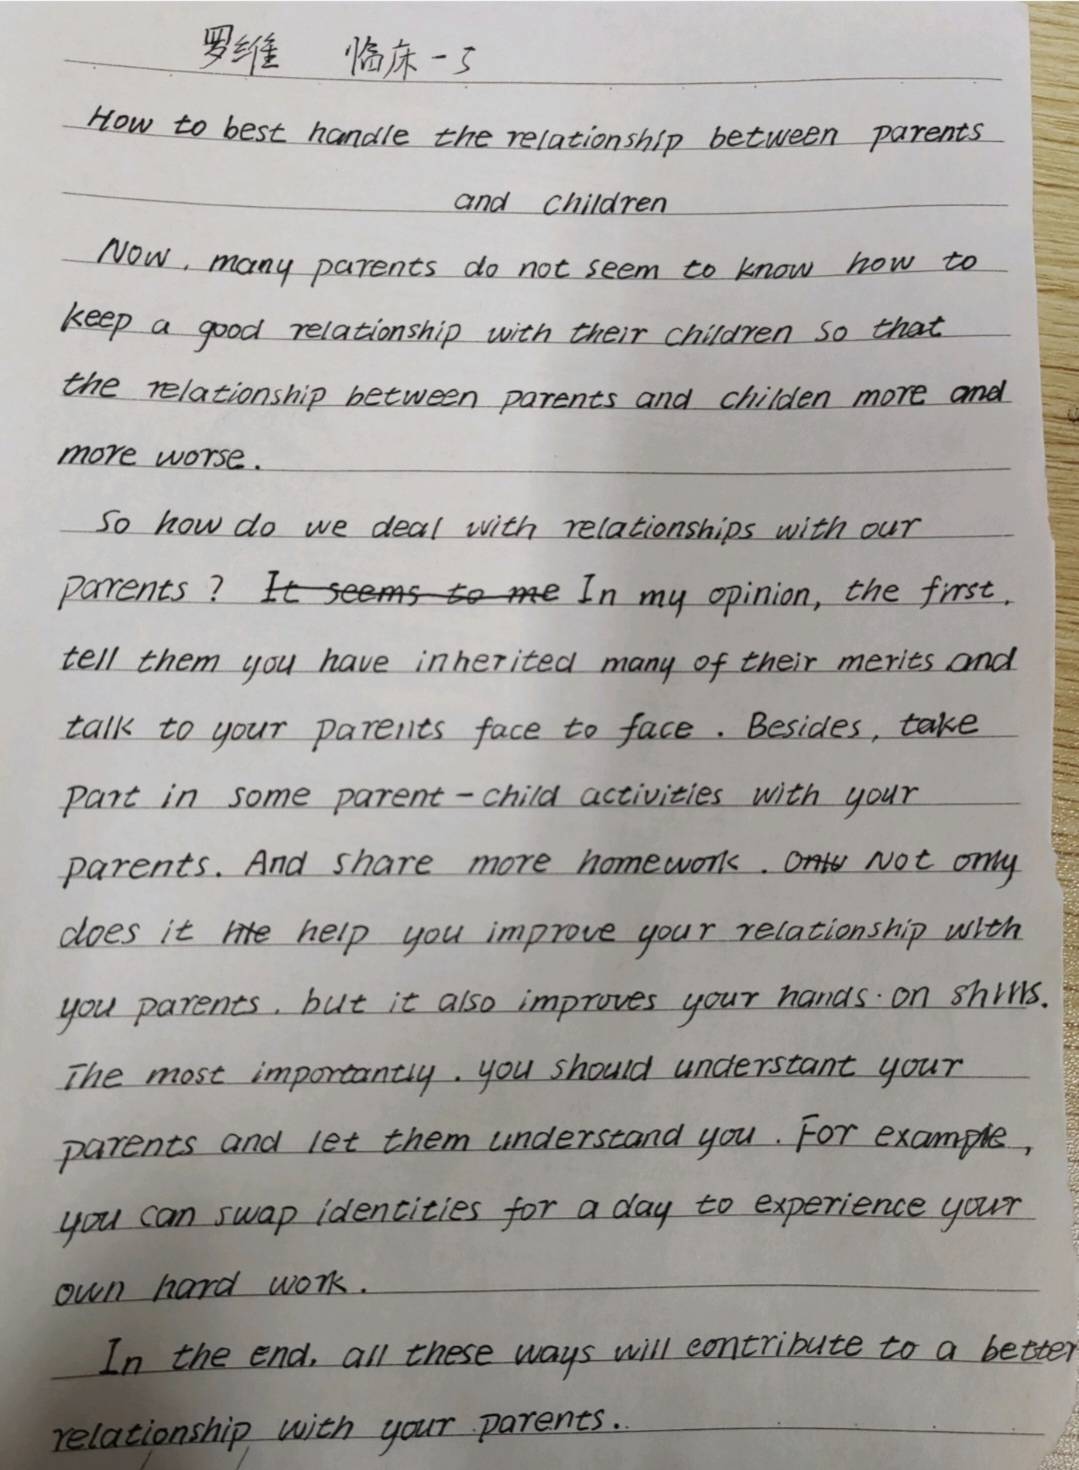 罗维 临床-5
How to best handle the relationship between parents
and children
Now, many parents do not seem to know how to
keep a good relationship with their children so that
the relationship between parents and childen more and
more worse.
So how do we deal with relationships with our
parents? It seems to me In my opinion, the first,
tell them you have inherited many of their merits and
talk to your parents face to face. Besides, take
part in some parent-child activities with your
parents. And share more homework. Only Not only
does it help you improve your relationship with
you parents, but it also improves your hands-on shills.
The most importantly, you should understant your
parents and let them understand you. For example,
you can swap identities for a day to experience your
own hard work.
In the end, all these ways will contribute to a better
relationship with your parents.